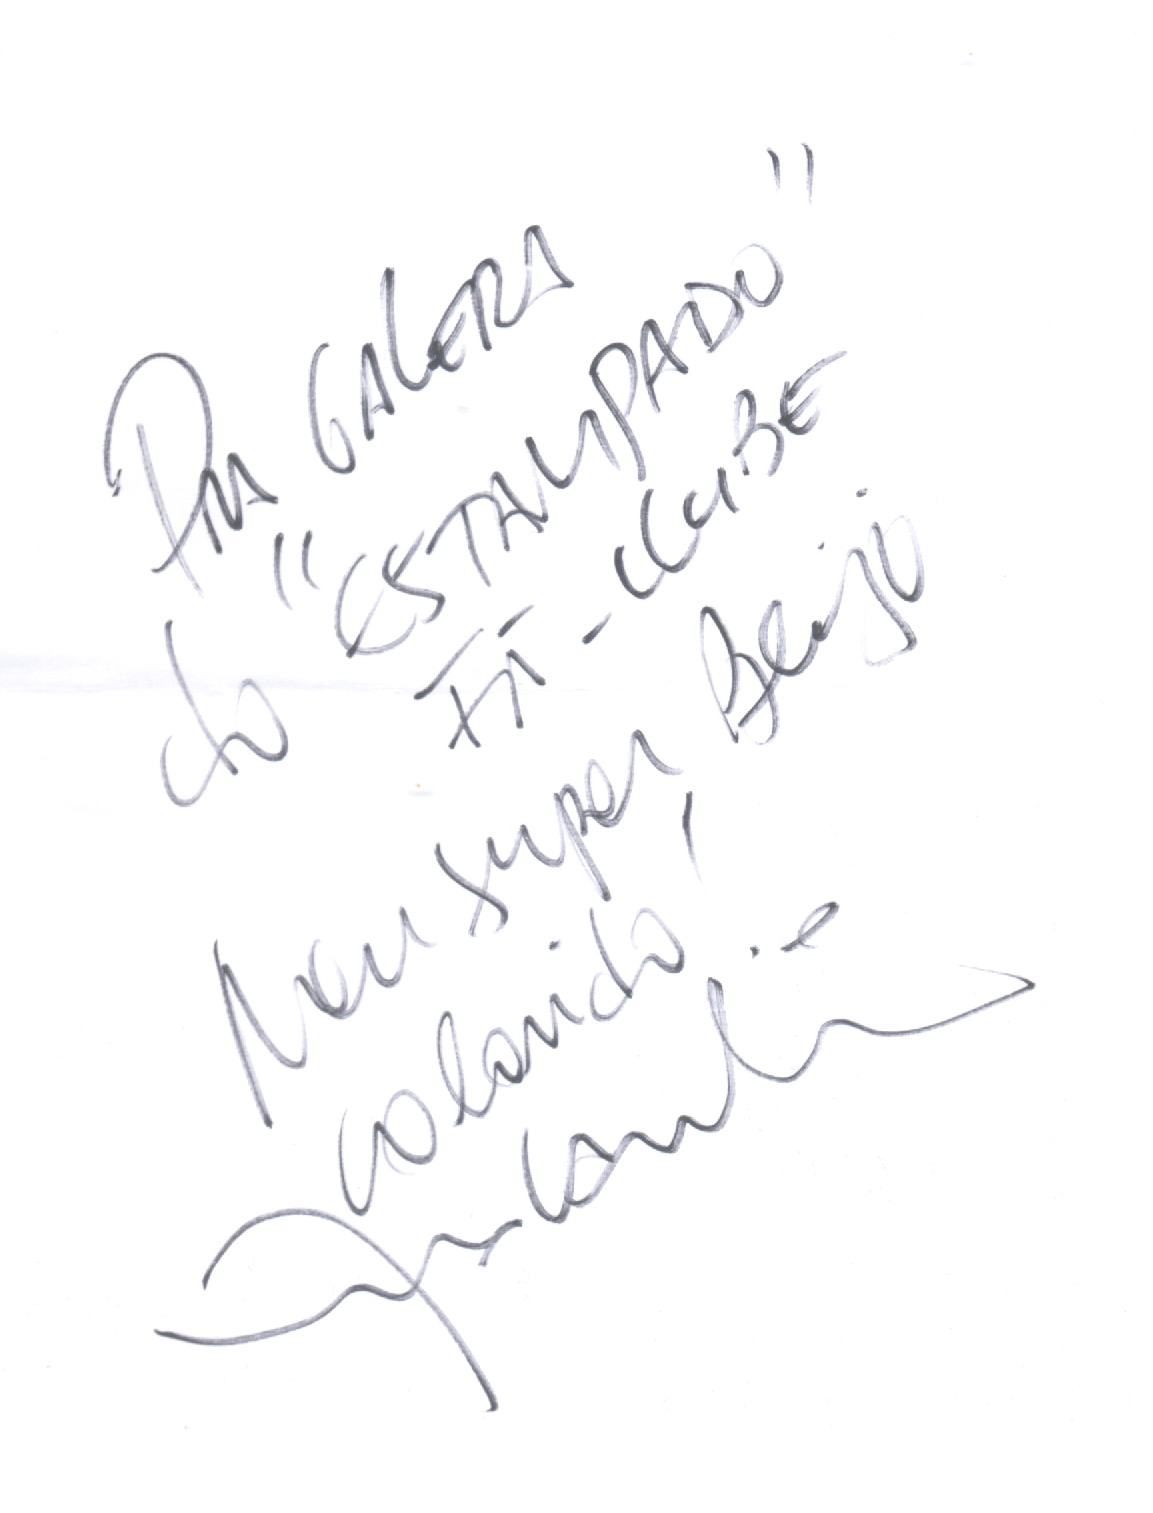 Pra GALERA
do "ESTAMPADO"
FÃ-CLUBE
Meu super Beijo
colorido!
Ana Carolina